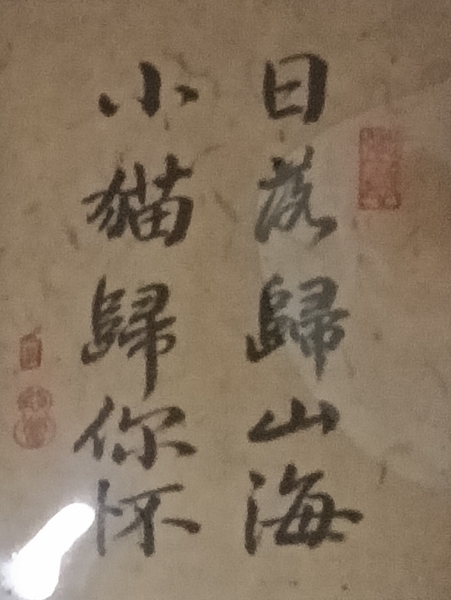 日落歸山海
小猫歸你怀